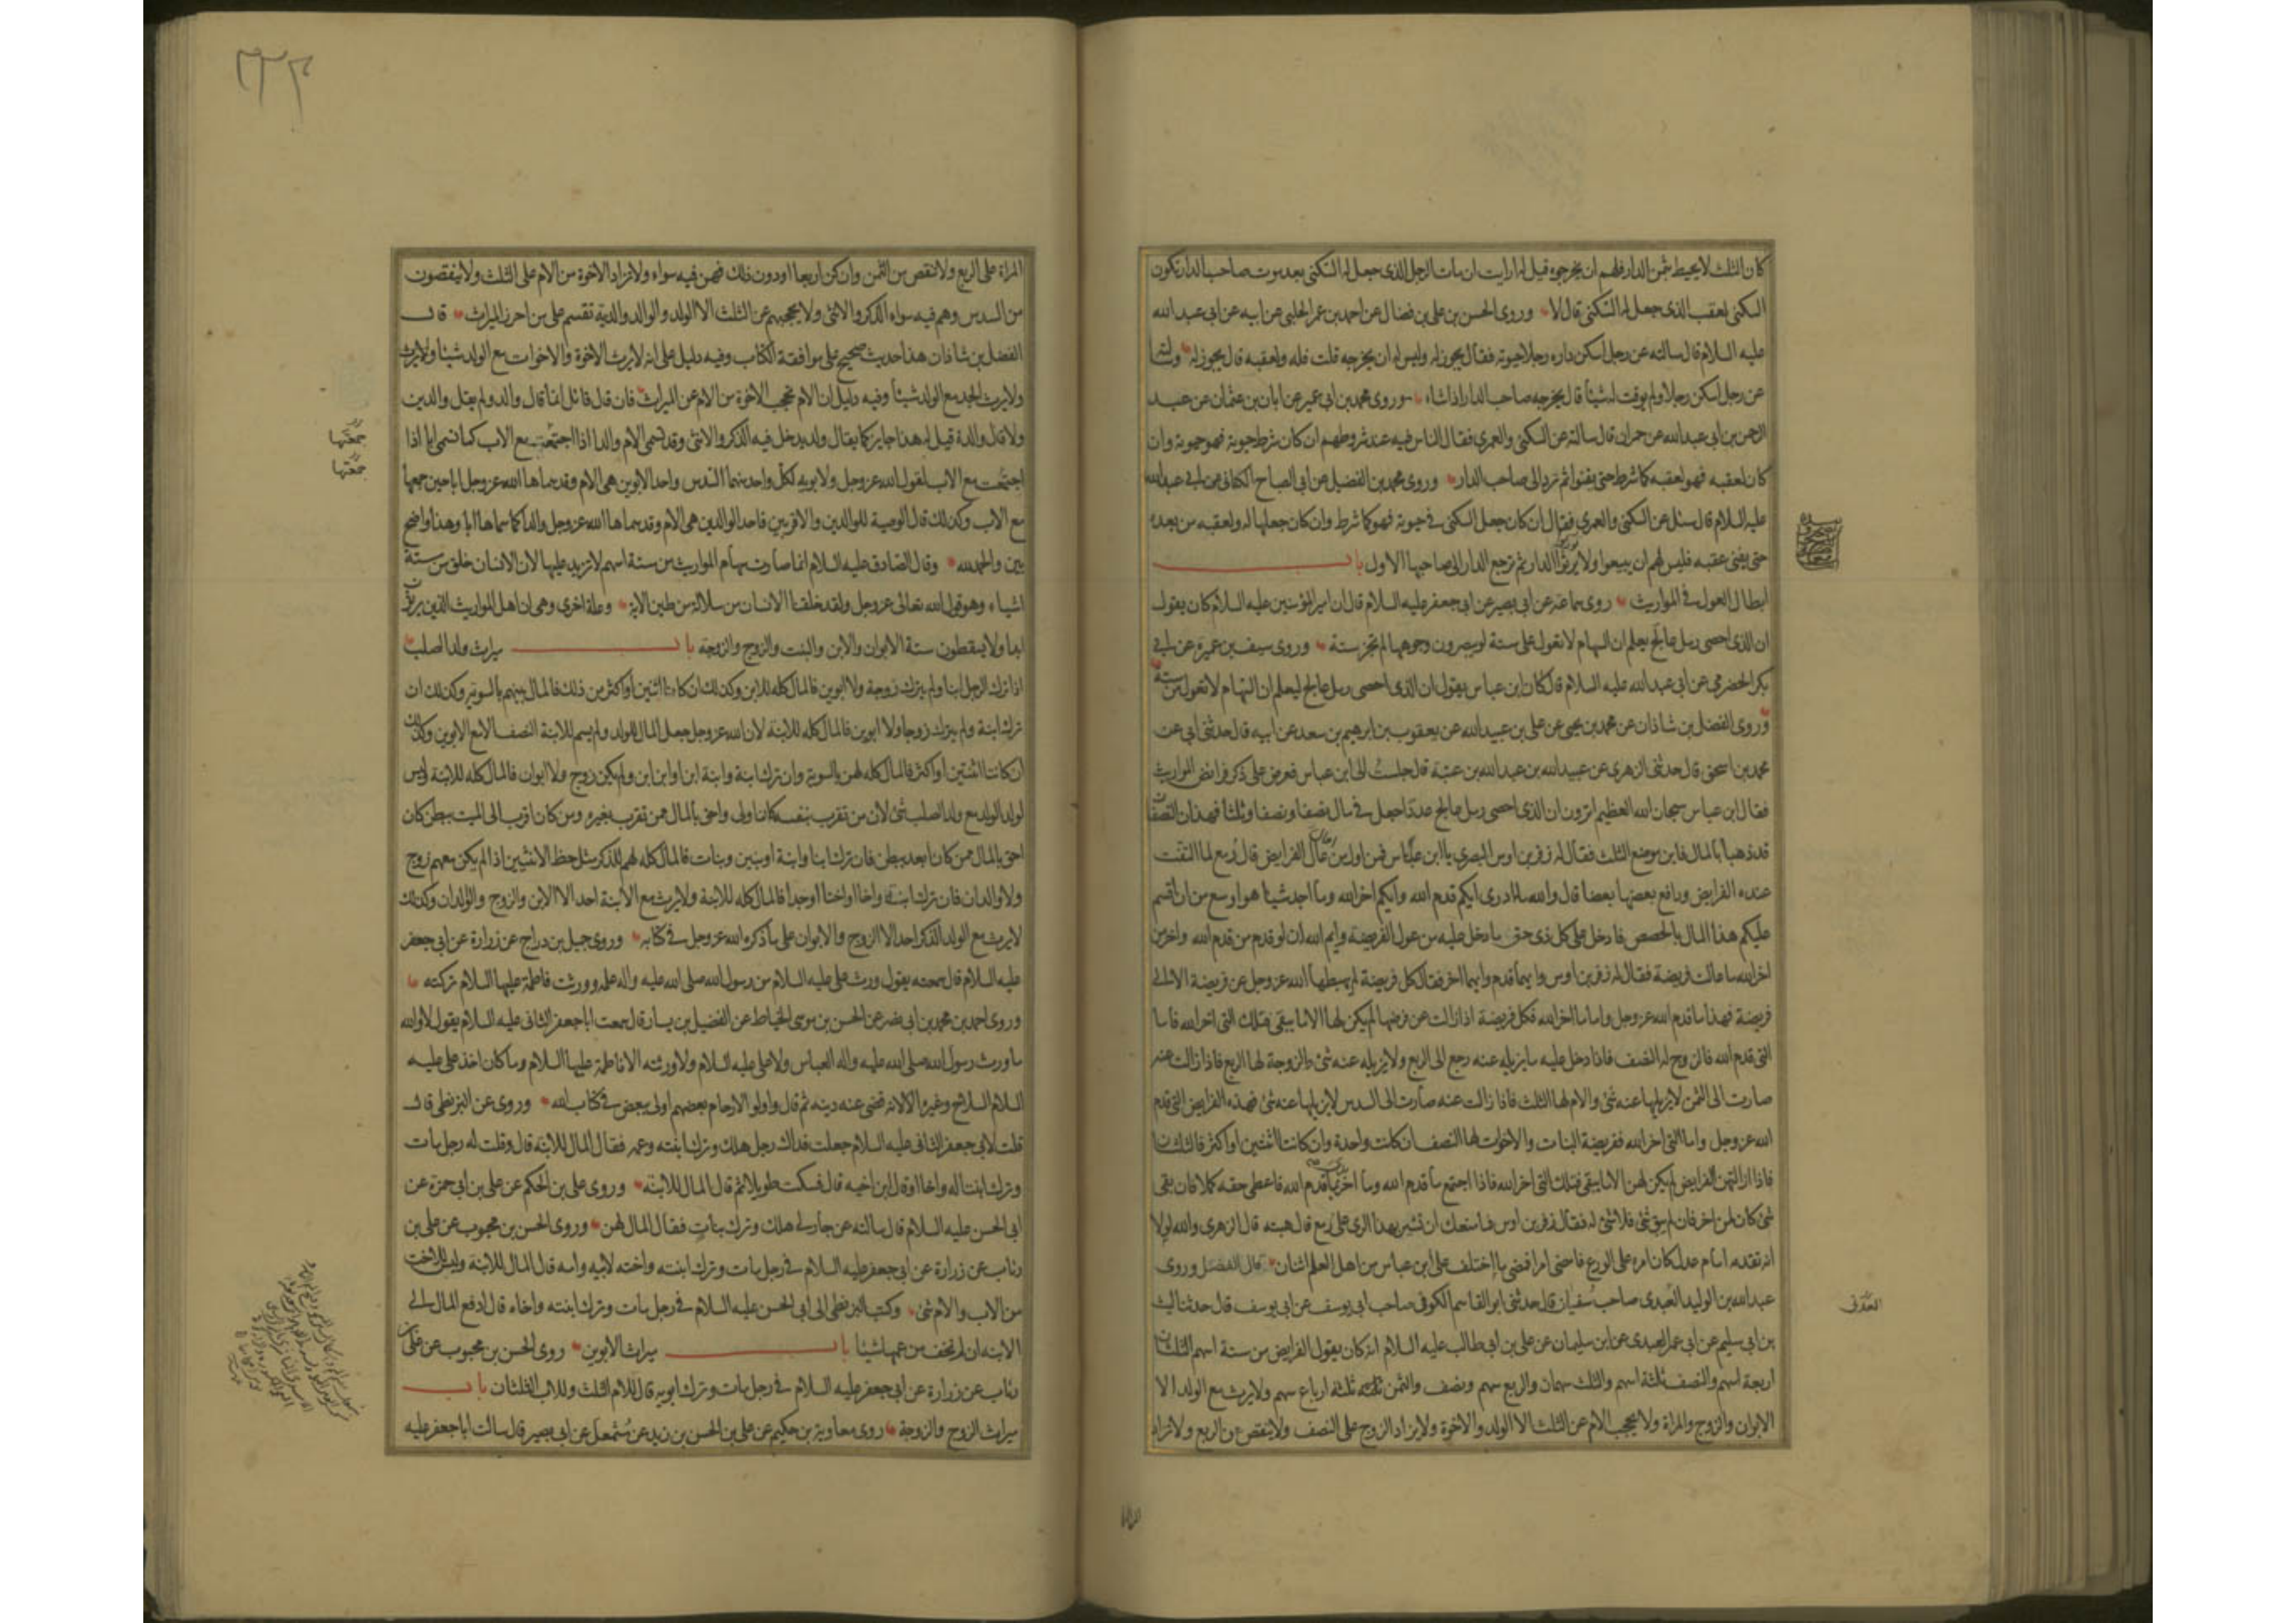 كان الثلث لا يحيط بثمن الدار فلهم ان يخرجوه قيل له ارايت ان مات الرجل الذى جعل له السكنى بعد موت صاحب الدار تكون
السكنى لعقب الذى جعل له السكنى قال لا وروى الحسن بن على بن فضال عن احمد بن عمر الحلبى عن ابيه عن ابى عبد الله
عليه السلام قال سالته عن رجل اسكن داره رجلا حيوته فقال يجوز له وليس له ان يخرجه قلت فله ولعقبه قال يجوز له وسالته
عن رجل اسكن رجلا ولم يوقت له شيئا قال يخرجه صاحب الدار اذا شاء وروى محمد بن ابى عمير عن ابان بن عثمان عن عبد
الرحمن بن ابى عبد الله عن حمران قال سالته عن السكنى والعمرى فقال الناس فيه عند شروطهم ان كان شرط حيوته فهو حيوته وان
كان لعقبه فهو لعقبه كما شرط حتى يفنوا ثم ترد الى صاحب الدار وروى محمد بن الفضيل عن ابى الصباح الكنانى عن ابى عبد الله
عليه السلام قال سئل عن السكنى والعمرى فقال ان كان جعل السكنى فى حيوته فهو كما شرط وان كان جعلها له ولعقبه من بعده
حتى يفنى عقبه فليس لهم ان يبيعوا ولا يورثوا الدار ثم ترجع الدار الى صاحبها الاول باب
ابطال العول فى المواريث روى سماعة عن ابى بصير عن ابى جعفر عليه السلام قال ان امير المؤمنين عليه السلام كان يقول
ان الذى احصى رمل عالج يعلم ان السهام لا تعول على ستة لو يبصرون وجوهها لم تجز ستة وروى سيف بن عميرة عن ابى
بكر الحضرمى عن ابى عبد الله عليه السلام قال كان ابن عباس يقول ان الذى احصى رمل عالج ليعلم ان السهام لا تعول من ستة
وروى الفضل بن شاذان عن محمد بن يحيى عن على بن عبيد الله عن يعقوب بن ابرهيم بن سعد عن ابيه قال حدثنى ابى عن
محمد بن اسحق قال حدثنى الزهرى عن عبيد الله بن عبد الله بن عتبة قال جلست الى ابن عباس فعرض على ذكر فرائض المواريث
فقال ابن عباس سبحان الله العظيم اترون ان الذى احصى رمل عالج عددا جعل فى مال نصفا ونصفا وثلثا فهذان النصفان
قد ذهبا بالمال فاين موضع الثلث فقال له زفر بن اوس البصرى يا ابن عباس فمن اول من اعال الفرايض قال رمع لما التفت
عنده الفرايض ودافع بعضها بعضا قال والله ما ادرى ايكم قدم الله وايكم اخر الله وما اجد شيئا هو اوسع من ان اقسم
عليكم هذا المال بالحصص فادخل على كل ذى حق ما دخل عليه من عول الفريضة وايم الله ان لو قدم من قدم الله واخر من
اخر الله ما عالت فريضة فقال له زفر بن اوس وايهما قدم وايهما اخر فقال كل فريضة لم يهبطها الله عز وجل عن فريضة الا الى
فريضة فهذا ما قدم الله عز وجل واما ما اخر الله فكل فريضة اذا زالت عن فرضها لم يكن لها الا ما يبقى فتلك التى اخر الله فاما
التى قدم الله فالزوج له النصف فاذا دخل عليه ما يزيله عنه رجع الى الربع ولا يزيله عنه شئ والزوجة لها الربع فاذا زالت عنه
صارت الى الثمن لا يزيلها عنه شئ والام لها الثلث فاذا زالت عنه صارت الى السدس لا يزيلها عنه شئ فهذه الفرايض التى قدم
الله عز وجل واما التى اخر الله ففريضة البنات والاخوات لها النصف ان كانت واحدة وان كانت اثنتين او اكثر فالثلثان
فاذا ازالتهن الفرايض لم يكن لهن الا ما يبقى فتلك التى اخر الله فاذا اجتمع ما قدم الله وما اخر بدئ بما قدم الله فاعطى حقه كملا فان بقى
شئ كان لمن اخر فان لم يبق شئ فلا شئ له فقال زفر بن اوس فما منعك ان تشير بهذا الرى على رمع قال هبته قال الزهرى والله لولا
انه تقدمه امام عدل كان امره على الورع فامضى امرا فمضى ما اختلف على ابن عباس من اهل العلم اثنان قال الفضل وروى
عبد الله بن الوليد العبدى صاحب سفيان قال حدثنى ابو القاسم الكوفى صاحب ابى يوسف عن ابى يوسف قال حدثنا ليث
بن ابى سليم عن ابى عمر العبدى عن ابن سليمان عن على بن ابى طالب عليه السلام انه كان يقول الفرايض من ستة اسهم الثلثان
اربعة اسهم والنصف ثلثة اسهم والثلث سهمان والربع سهم ونصف والثمن ثلثة ارباع سهم ولا يرث مع الولد الا
الابوان والزوج والمراة ولا يحجب الام عن الثلث الا الولد والاخوة ولا يزاد الزوج على النصف ولا ينقص من الربع ولا تزاد
العدنى
المراة
٢٢٣
المراة على الربع ولا تنقص من الثمن وان كن اربعا او دون ذلك فهن فيه سواء ولا تزاد الاخوة من الام على الثلث ولا ينقصون
من السدس وهم فيه سواء الذكر والانثى ولا يحجبهم عن الثلث الا الولد والوالد والدية تقسم على من احرز الميراث قال
الفضل بن شاذان هذا حديث صحيح على موافقة الكتاب وفيه دليل على انه لا يرث الاخوة والاخوات مع الولد شيئا ولا يرث
ولا يرث الجد مع الولد شيئا وفيه دليل ان الام تحجب الاخوة من الام عن الميراث فان قال قائل انما قال والد ولم يقل والدين
ولا قال والدة قيل له هذا جايز كما يقال ولد يدخل فيه الذكر والانثى وقد تسمى الام والدا اذا اجتمعت مع الاب كما تسمى ابا اذا
اجتمعت مع الاب لقول الله عز وجل ولابويه لكل واحد منهما السدس واحد الابوين هى الام وقد سماها الله عز وجل ابا حين جمعها
مع الاب وكذلك قال الوصية للوالدين والاقربين فاحد الوالدين هى الام وقد سماها الله عز وجل والدا كما سماها ابا وهذا واضح
بين والحمد لله وقال الصادق عليه السلام انما صارت سهام المواريث من ستة اسهم لا تزيد عليها لان الانسان خلق من ستة
اشياء وهو قول الله تعالى عز وجل ولقد خلقنا الانسان من سلالة من طين الاية وعلة اخرى وهى ان اهل المواريث الذين يرثون
ابدا ولا يسقطون ستة الابوان والابن والبنت والزوج والزوجة باب ميراث ولد الصلب
اذا ترك الرجل ابنا ولم يترك زوجة ولا ابوين فالمال كله للابن وكذلك ان كانا اثنين او اكثر من ذلك فالمال بينهم بالسوية وكذلك ان
ترك ابنة ولم يترك زوجا ولا ابوين فالمال كله للابنة لان الله عز وجل جعل المال للولد ولم يسم للابنة النصف الا مع الابوين وكذلك
ان كانت اثنتين او اكثر فالمال كله لهن بالسوية وان ترك ابنة وابنة ابن وابن ابن ولم يكن زوج ولا ابوان فالمال كله للابنة وليس
لولد الولد مع ولد الصلب شئ لان من تقرب بنفسه كان اولى واحق بالمال ممن تقرب بغيره ومن كان اقرب الى الميت ببطن كان
احق بالمال ممن كان ابعد ببطن فان ترك ابنا وابنة او بنين وبنات فالمال كله لهم للذكر مثل حظ الانثيين اذا لم يكن معهم زوج
ولا والدان فان ترك ابنة واخا او اختا او جدا فالمال كله للابنة ولا يرث مع الابنة احد الا الابن والزوج والوالدان وكذلك
لا يرث مع الولد الذكر احد الا الزوج والابوان على ما ذكره الله عز وجل فى كتابه وروى جميل بن دراج عن زرارة عن ابى جعفر
عليه السلام قال سمعته يقول ورث على عليه السلام من رسول الله صلى الله عليه واله علمه وورثت فاطمة عليها السلام تركته
وروى احمد بن محمد بن ابى نصر عن الحسن بن موسى الخياط عن الفضيل بن يسار قال سمعت ابا جعفر الثانى عليه السلام يقول لا والله
ما ورث رسول الله صلى الله عليه واله العباس ولا على عليه السلام ولا ورثته الا فاطمة عليها السلام وما كان اخذ على عليه
السلام السلاح وغيره الا لانه قضى عنه دينه ثم قال واولو الارحام بعضهم اولى ببعض فى كتاب الله وروى عن البزنطى قال
قلت لابى جعفر الثانى عليه السلام جعلت فداك رجل هلك وترك ابنته وعمه فقال المال للابنة قال وقلت له رجل مات
وترك ابنتا له واخا او قال ابن اخيه قال فسكت طويلا ثم قال المال للابنة وروى على بن الحكم عن على بن ابى حمزة عن
ابى الحسن عليه السلام قال سالته عن جار لى هلك وترك بنات فقال المال لهن وروى الحسن بن محبوب عن على بن
رئاب عن زرارة عن ابى جعفر عليه السلام فى رجل مات وترك ابنته واخته لابيه وامه قال المال للابنة وليس للاخت
من الاب والام شئ وكتب البزنطى الى ابى الحسن عليه السلام فى رجل مات وترك ابنته واخاه قال ادفع المال الى
الابنة ان لم تخف من عمها شيئا باب ميراث الابوين روى الحسن بن محبوب عن على بن
رئاب عن زرارة عن ابى جعفر عليه السلام فى رجل مات وترك ابويه قال للام الثلث وللاب الثلثان باب
ميراث الزوج والزوجة روى معاوية بن حكيم عن على بن الحسن بن زيد عن مشمعل عن ابى بصير قال سالت ابا جعفر عليه
جمعتها
جمعتها